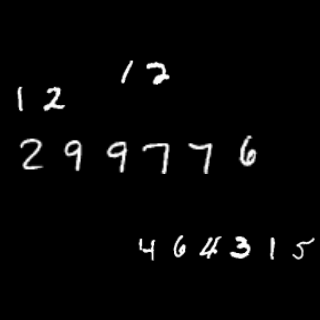 12
12
299776
464315